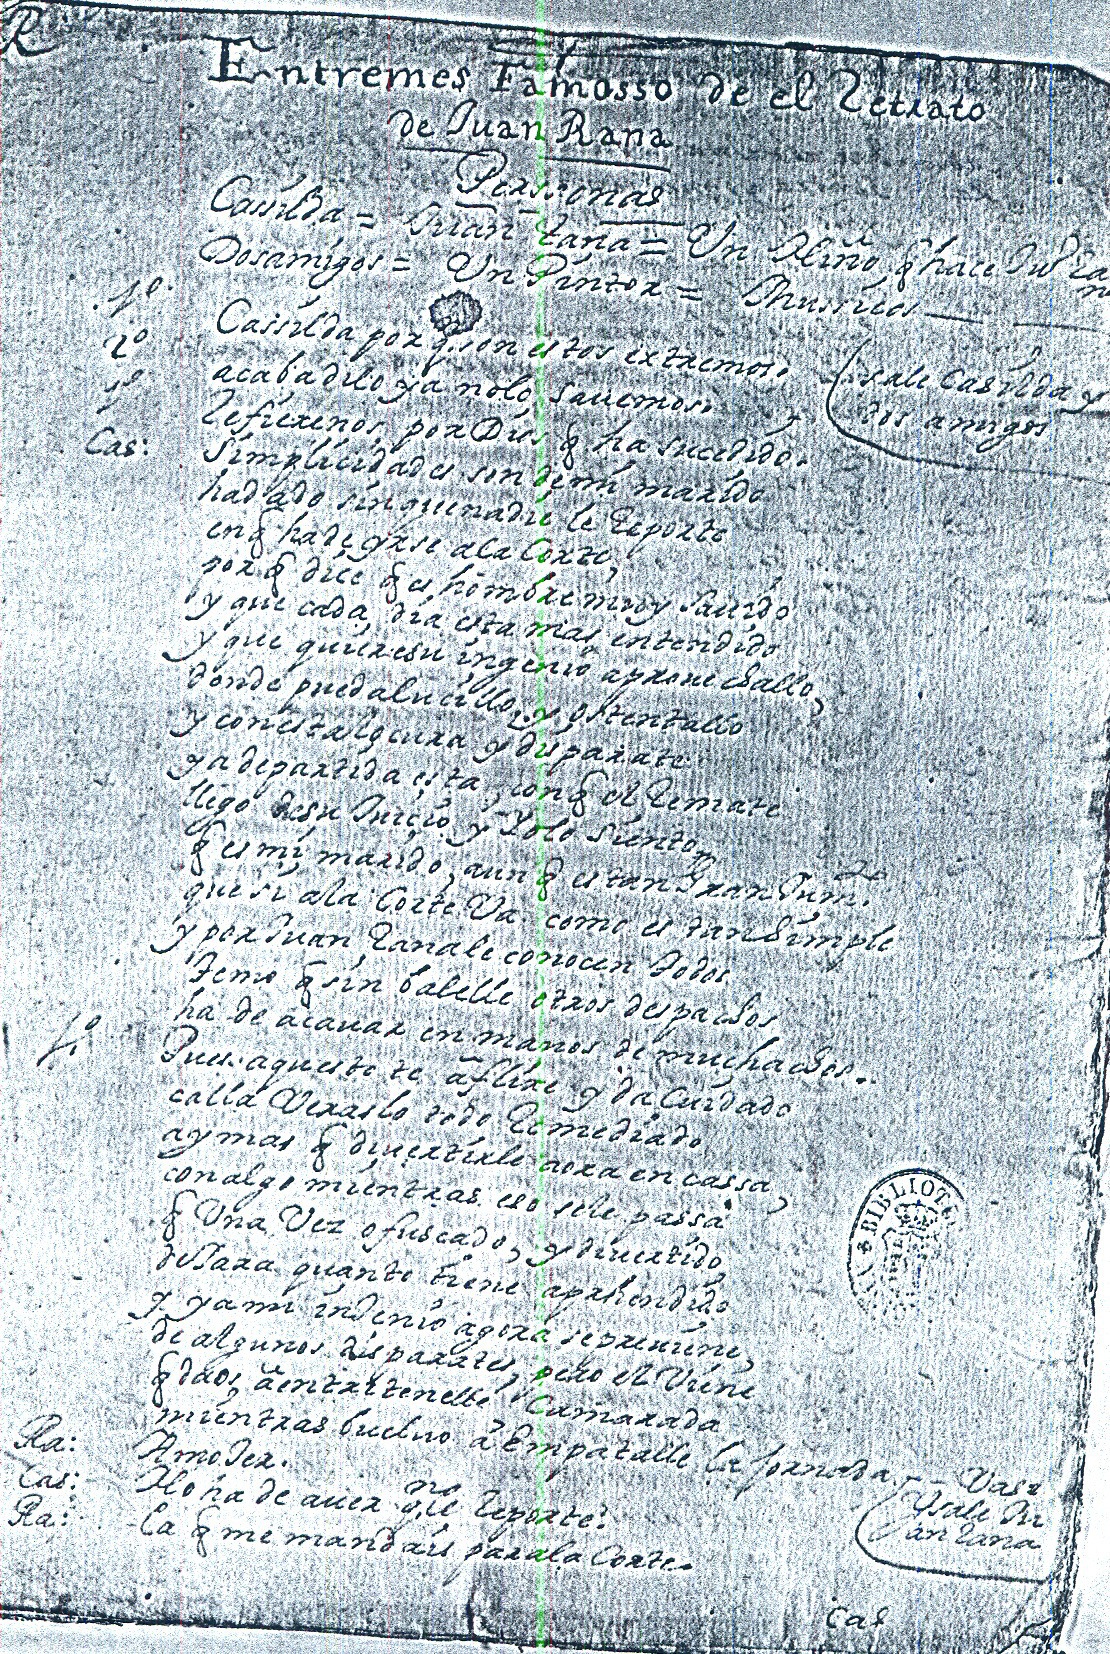 Entremes Famosso de el Retrato
de Juan Rana
Perssonas
Cassilda = Juan Rana = Un Niño, q hace Juº Rana
Dos amigos = Un Pintor = Mussicos
1º Cassilda por q son estos extremos.
2º acaba dilo ya no lo sauemos.
1º Refierenos por Dios q ha sucedido.
sale Casilda y
dos amigos
Cas: Simplicidades son de mi marido
ha dado sin que nadie le Reporte
en q ha de yrse a la Corte,
por q dice q es hombre muy sauido
y que cada dia esta mas entendido
y que quiere su ingenio aprouechallo,
donde pueda lucillo, y ostentallo
y con esta locura y disparate
ya de partida esta, con q el Remate
llego de su Juicio, y Yo lo siento,
q es mi marido, aun q es tan Gran Jum.to
que si a la Corte Va como es tan Simple
y por Juan Rana le conocen todos
temo q sin balelle otros despachos
ha de acauar en manos de muchachos..
1º Pues aquesto te aflixe y da Cuidado
calla Veraslo todo Remediado
ay mas q diuertirle aora en cassa,
con algo mientras eso se le passa
q Una Vez ofuscado, y diuertido
dexara quanto tiene aprehendido
y ya mi indenio agora se preuiene,
de algunos disparates, pero el Viene
q daos, a entretenelle Camarada
mientras buelvo a Empatalle la jornada. Vase
y sale Ju
an Rana
Ra: Amo Jer.
Cas: No ha de auer q.n te Reporte?
Ra: La q me mandais para la Corte.
cas
BIBLIOTE